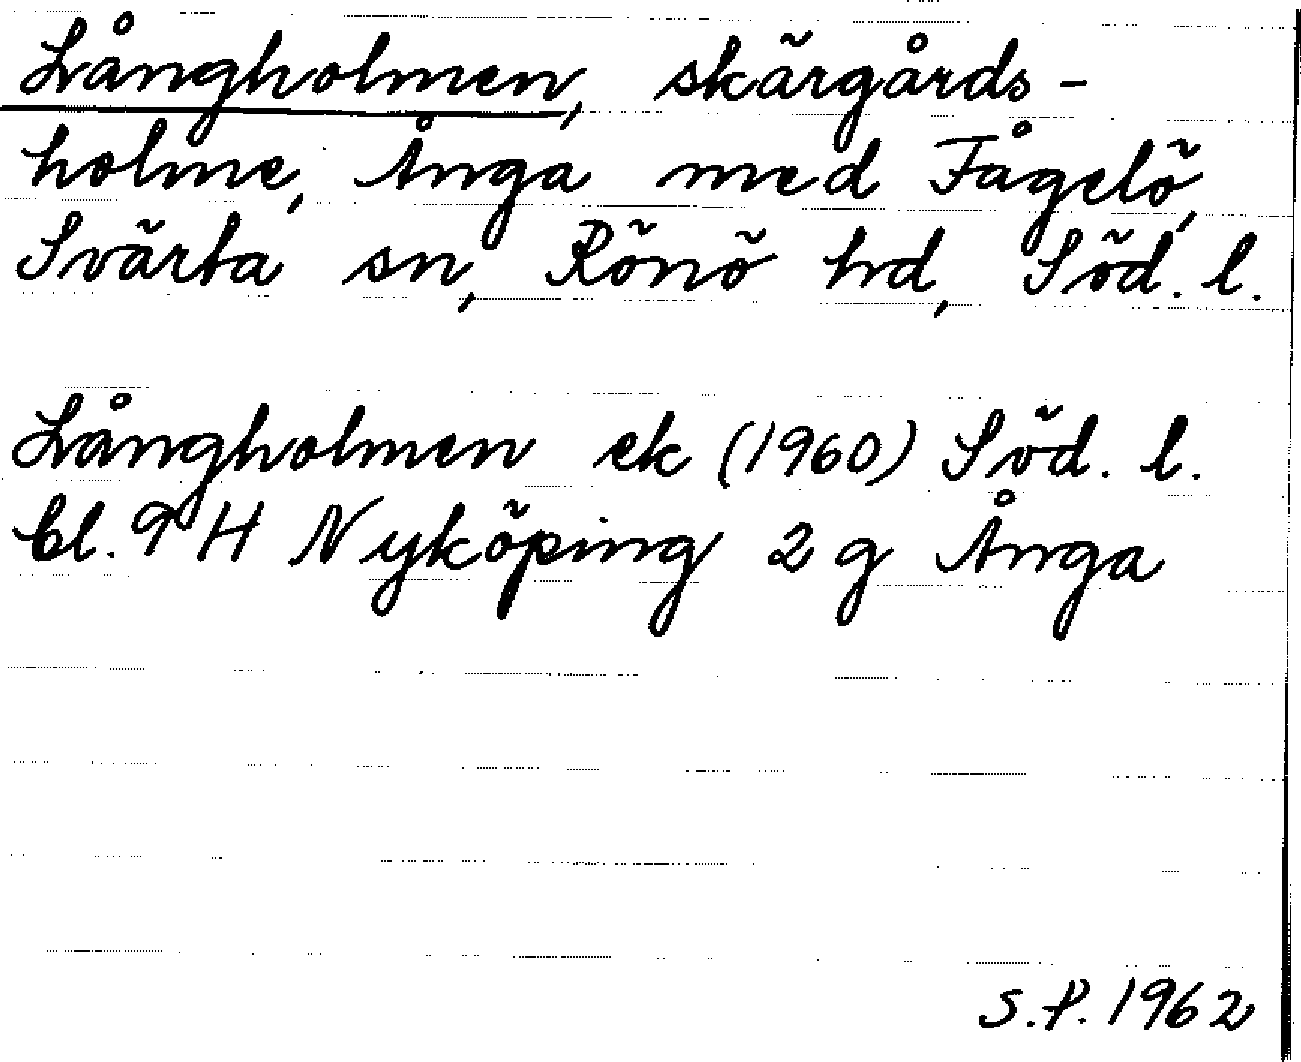 Långholmen, skärgårds-
holme, Ånga med Fågelö,
Svärta sn, Rönö hd, Söd. l.
Långholmen ek (1960) Söd. l.
bl. 9 H Nyköping 2 g Ånga
S.P. 1962